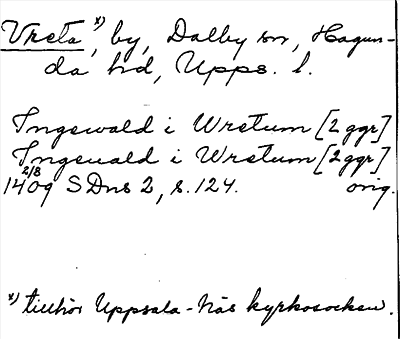 Vreta x), by, Dalby sn, Hagun-
da hd, Upps. l.
Ingewald i Wretum [2 ggr]
Ingeuald i Wretum [2 ggr]
1409 2/8 SDns 2, s. 124. orig.
x) tillhör Uppsala-Näs kyrkosocken.